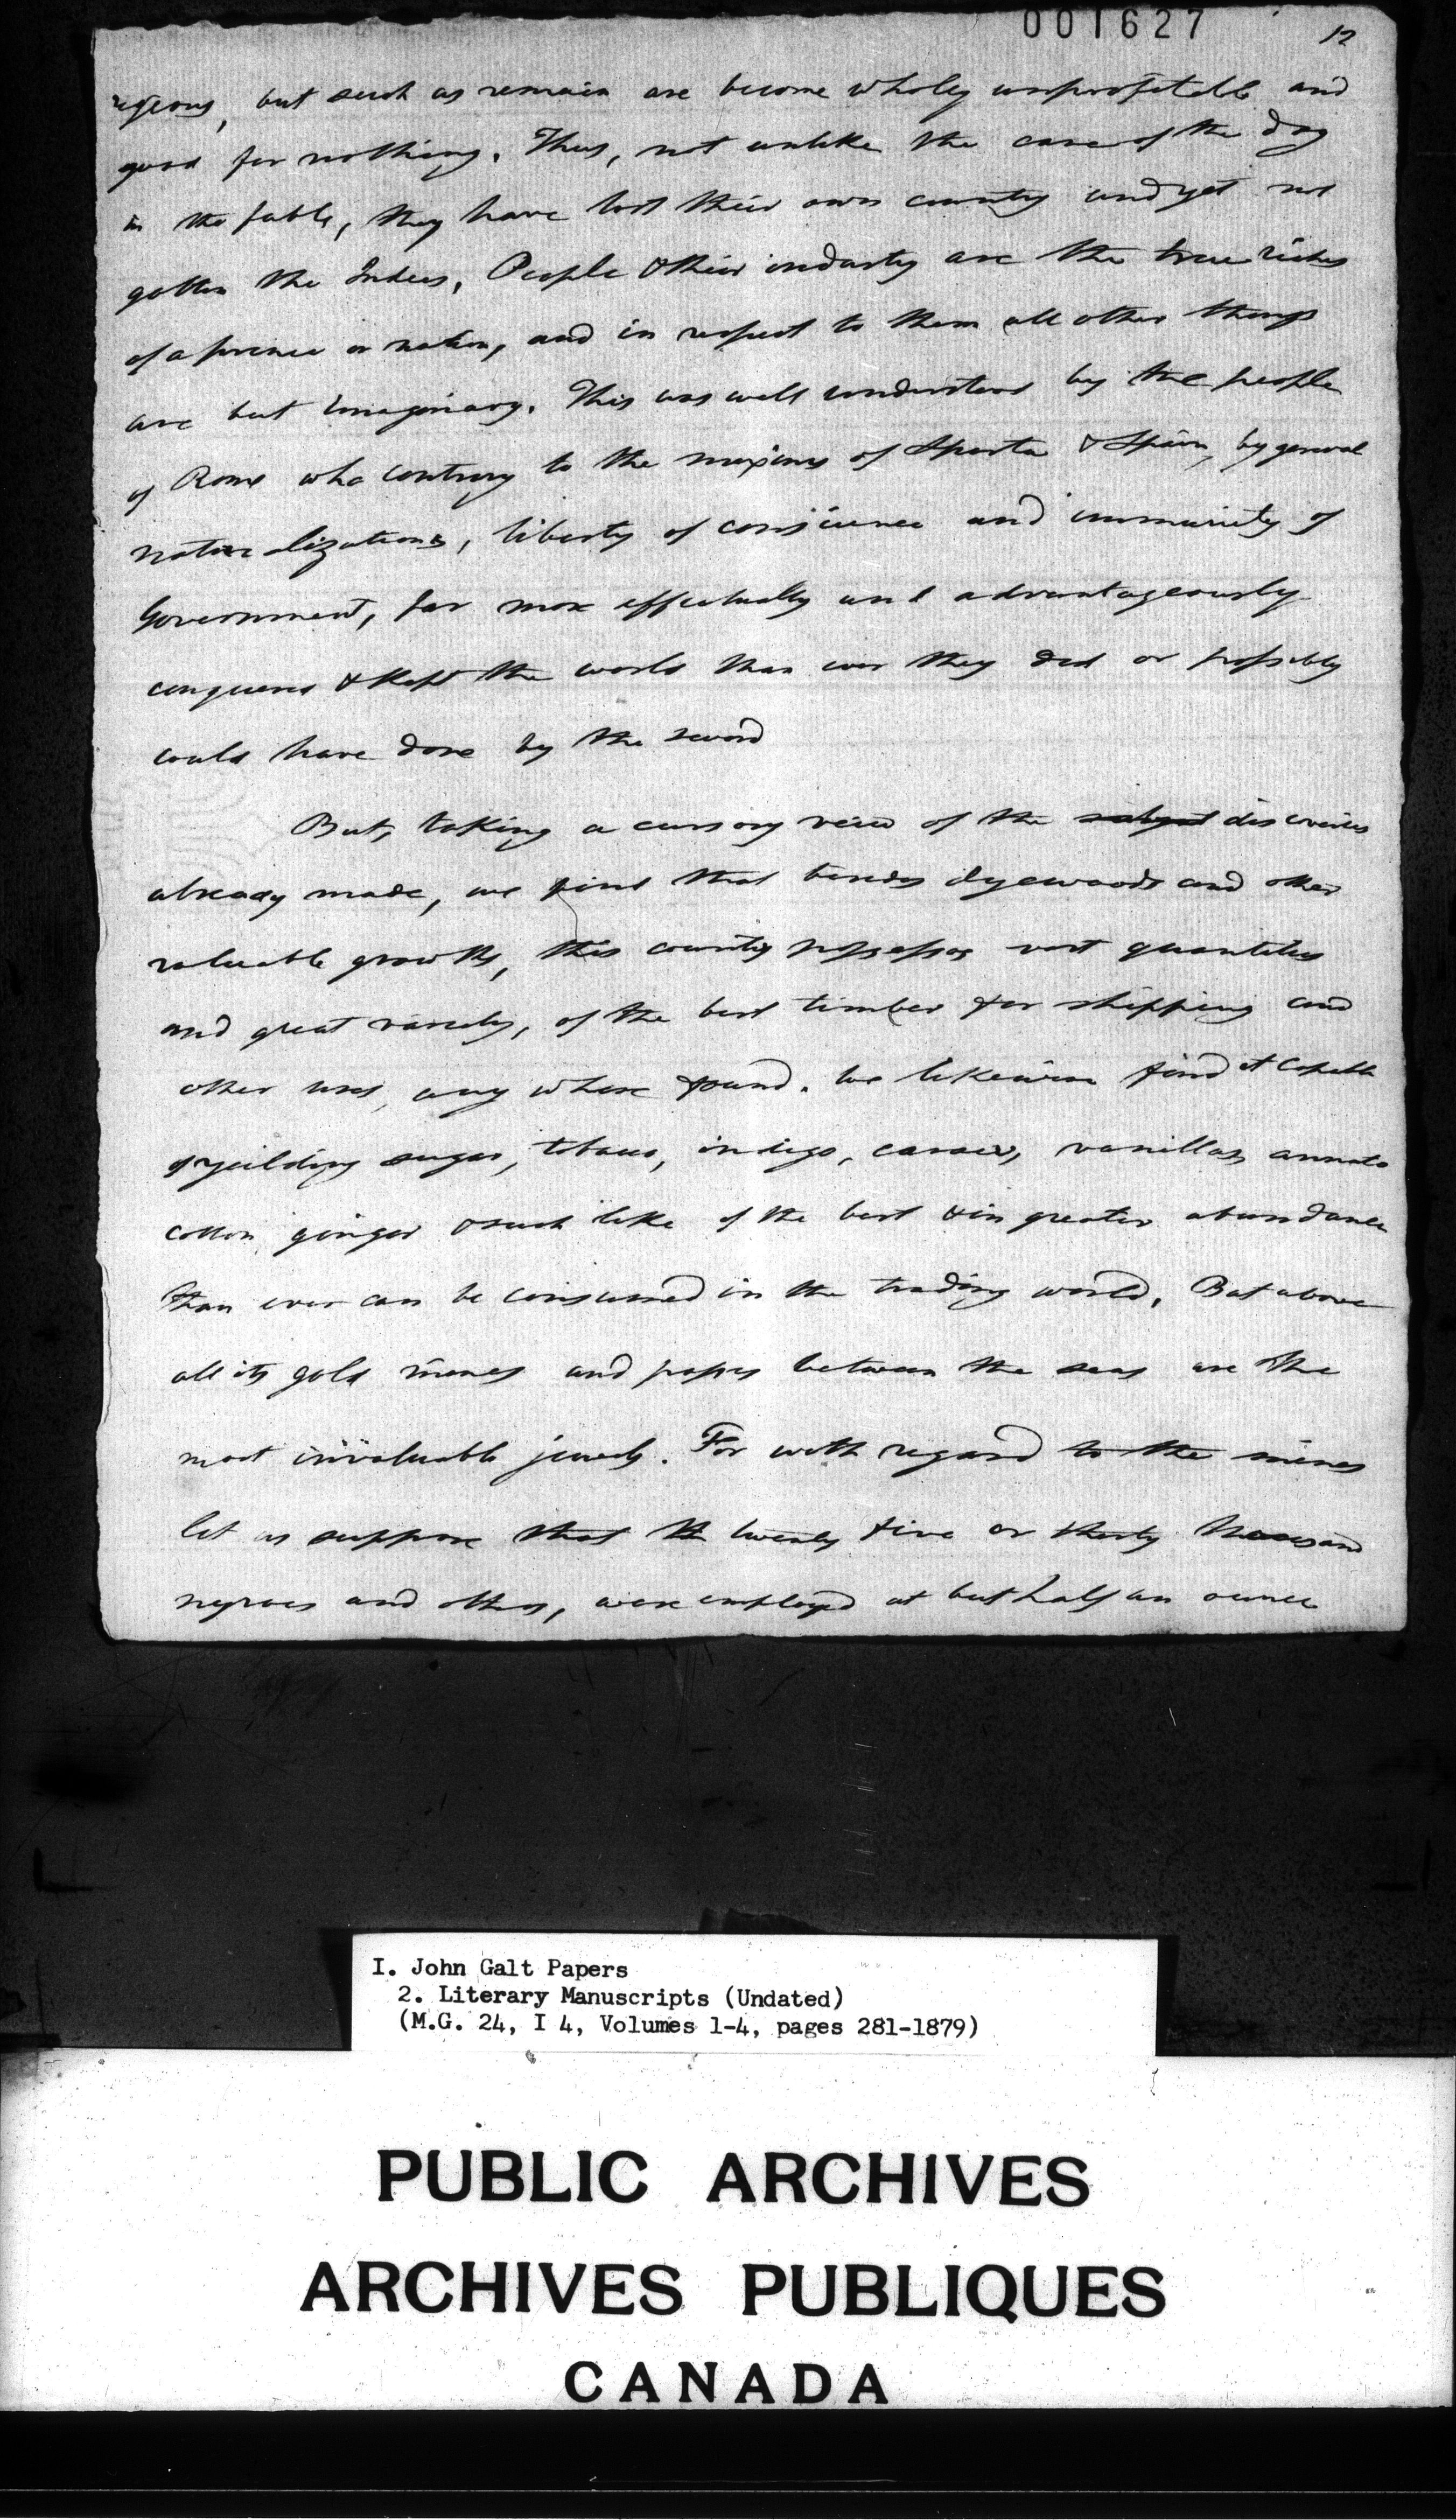 001627
12
regions, but such as remain are become wholy unprofitable and
good for nothing. Thus, not unlike the case of the dog
in the fable, they have lost their own country and yet not
gotten the Indies, People & their industry are the true riches
of a prince or nation, and in respect to them all other things
are but imaginary. This was well understood by the people
of Rome who contrary to the maxims of Sparta & Spain, by general
naturalizations, liberty of conscience and immunity of
Government, far more effectually and advantageously
conquered & kept the world than ever they did or possibly
could have done by the sword
But, taking a cursory view of the discoveries
already made, we find that besides dyewoods and other
valuable growths, this country possesses vast quantities
and great variety, of the best timber for shipping and
other uses, any where found. We likewise find it capable
of yeilding sugar, tobacco, indigo, cacao, vanillas, annato
cotton, ginger & such like of the best & in greater abundance
than ever can be consumed in the trading world. But above
all its gold mines and passes between the seas are the
most invaluable jewels. For with regard to the mines
let us suppose that twenty five or thirty thousand
negroes and others, were employed at but half an ounce
I. John Galt Papers
2. Literary Manuscripts (Undated)
(M.G. 24, I 4, Volumes 1-4, pages 281-1879)
PUBLIC ARCHIVES
ARCHIVES PUBLIQUES
CANADA